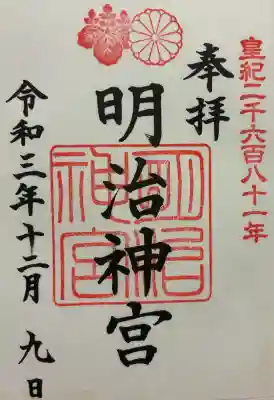 皇紀二千六百八十一年
奉拝
明治神宮
明治神宮
令和三年十二月九日